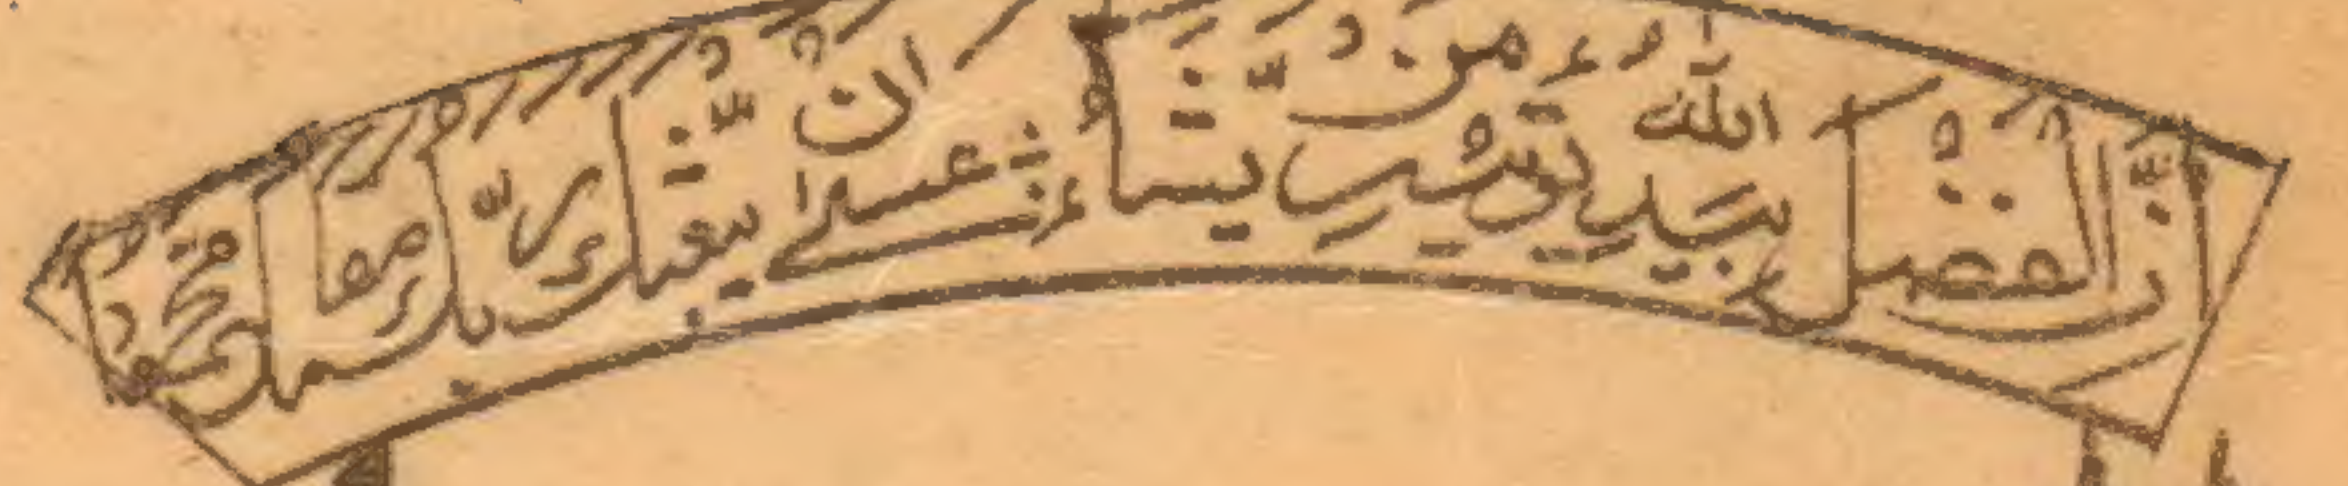 اِنَّ الْفَضْلَ بِيَدِ اللّٰهِ يُؤْتِيْهِ مَنْ يَّشَآءُ عَسٰٓى اَنْ يَّبْعَثَكَ رَبُّكَ مَقَامًا مَّحْمُوْدًا